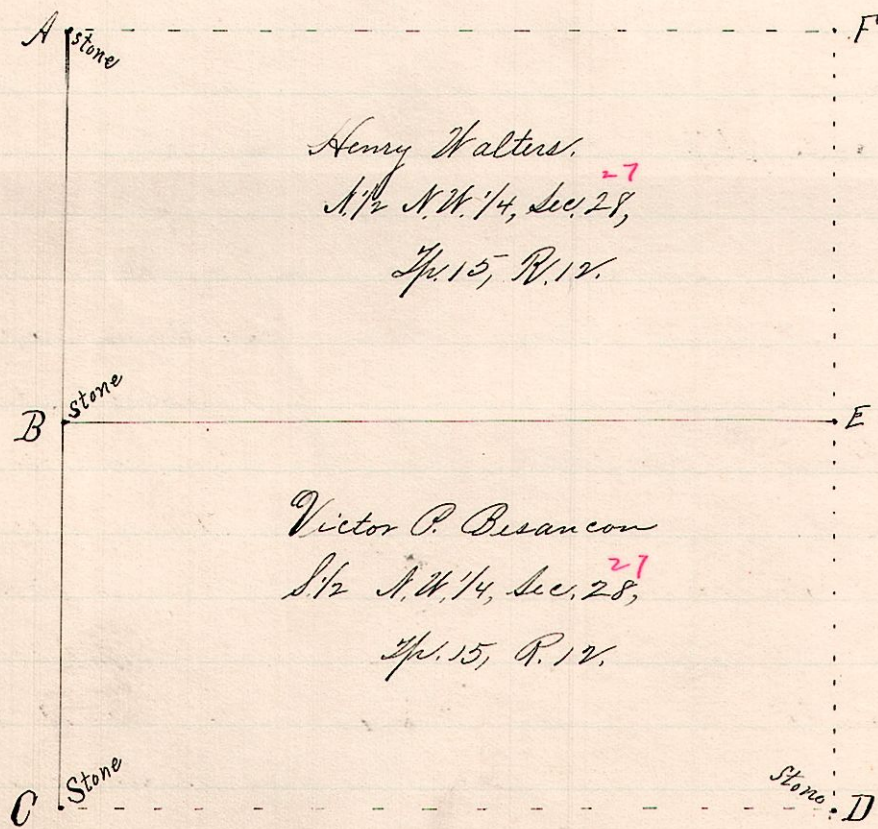 A stone F
Henry Walters.
27
N.1/2 N.W.1/4, Sec. 28,
Tp. 15, R. 12.
B stone E
Victor P. Besancon
27
S.1/2 N.W.1/4, Sec. 28,
Tp. 15, R. 12.
C Stone Stone D